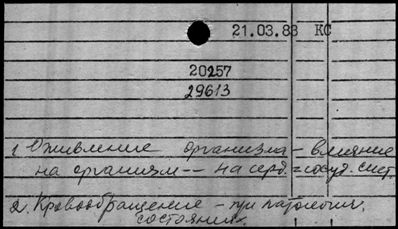 21.03.83 КС
20257
29613
1. Оживление организма – влияние
на организм -- на серд.=сосуд. сист.
2. Кровообращение – при патологич.
состояниях.